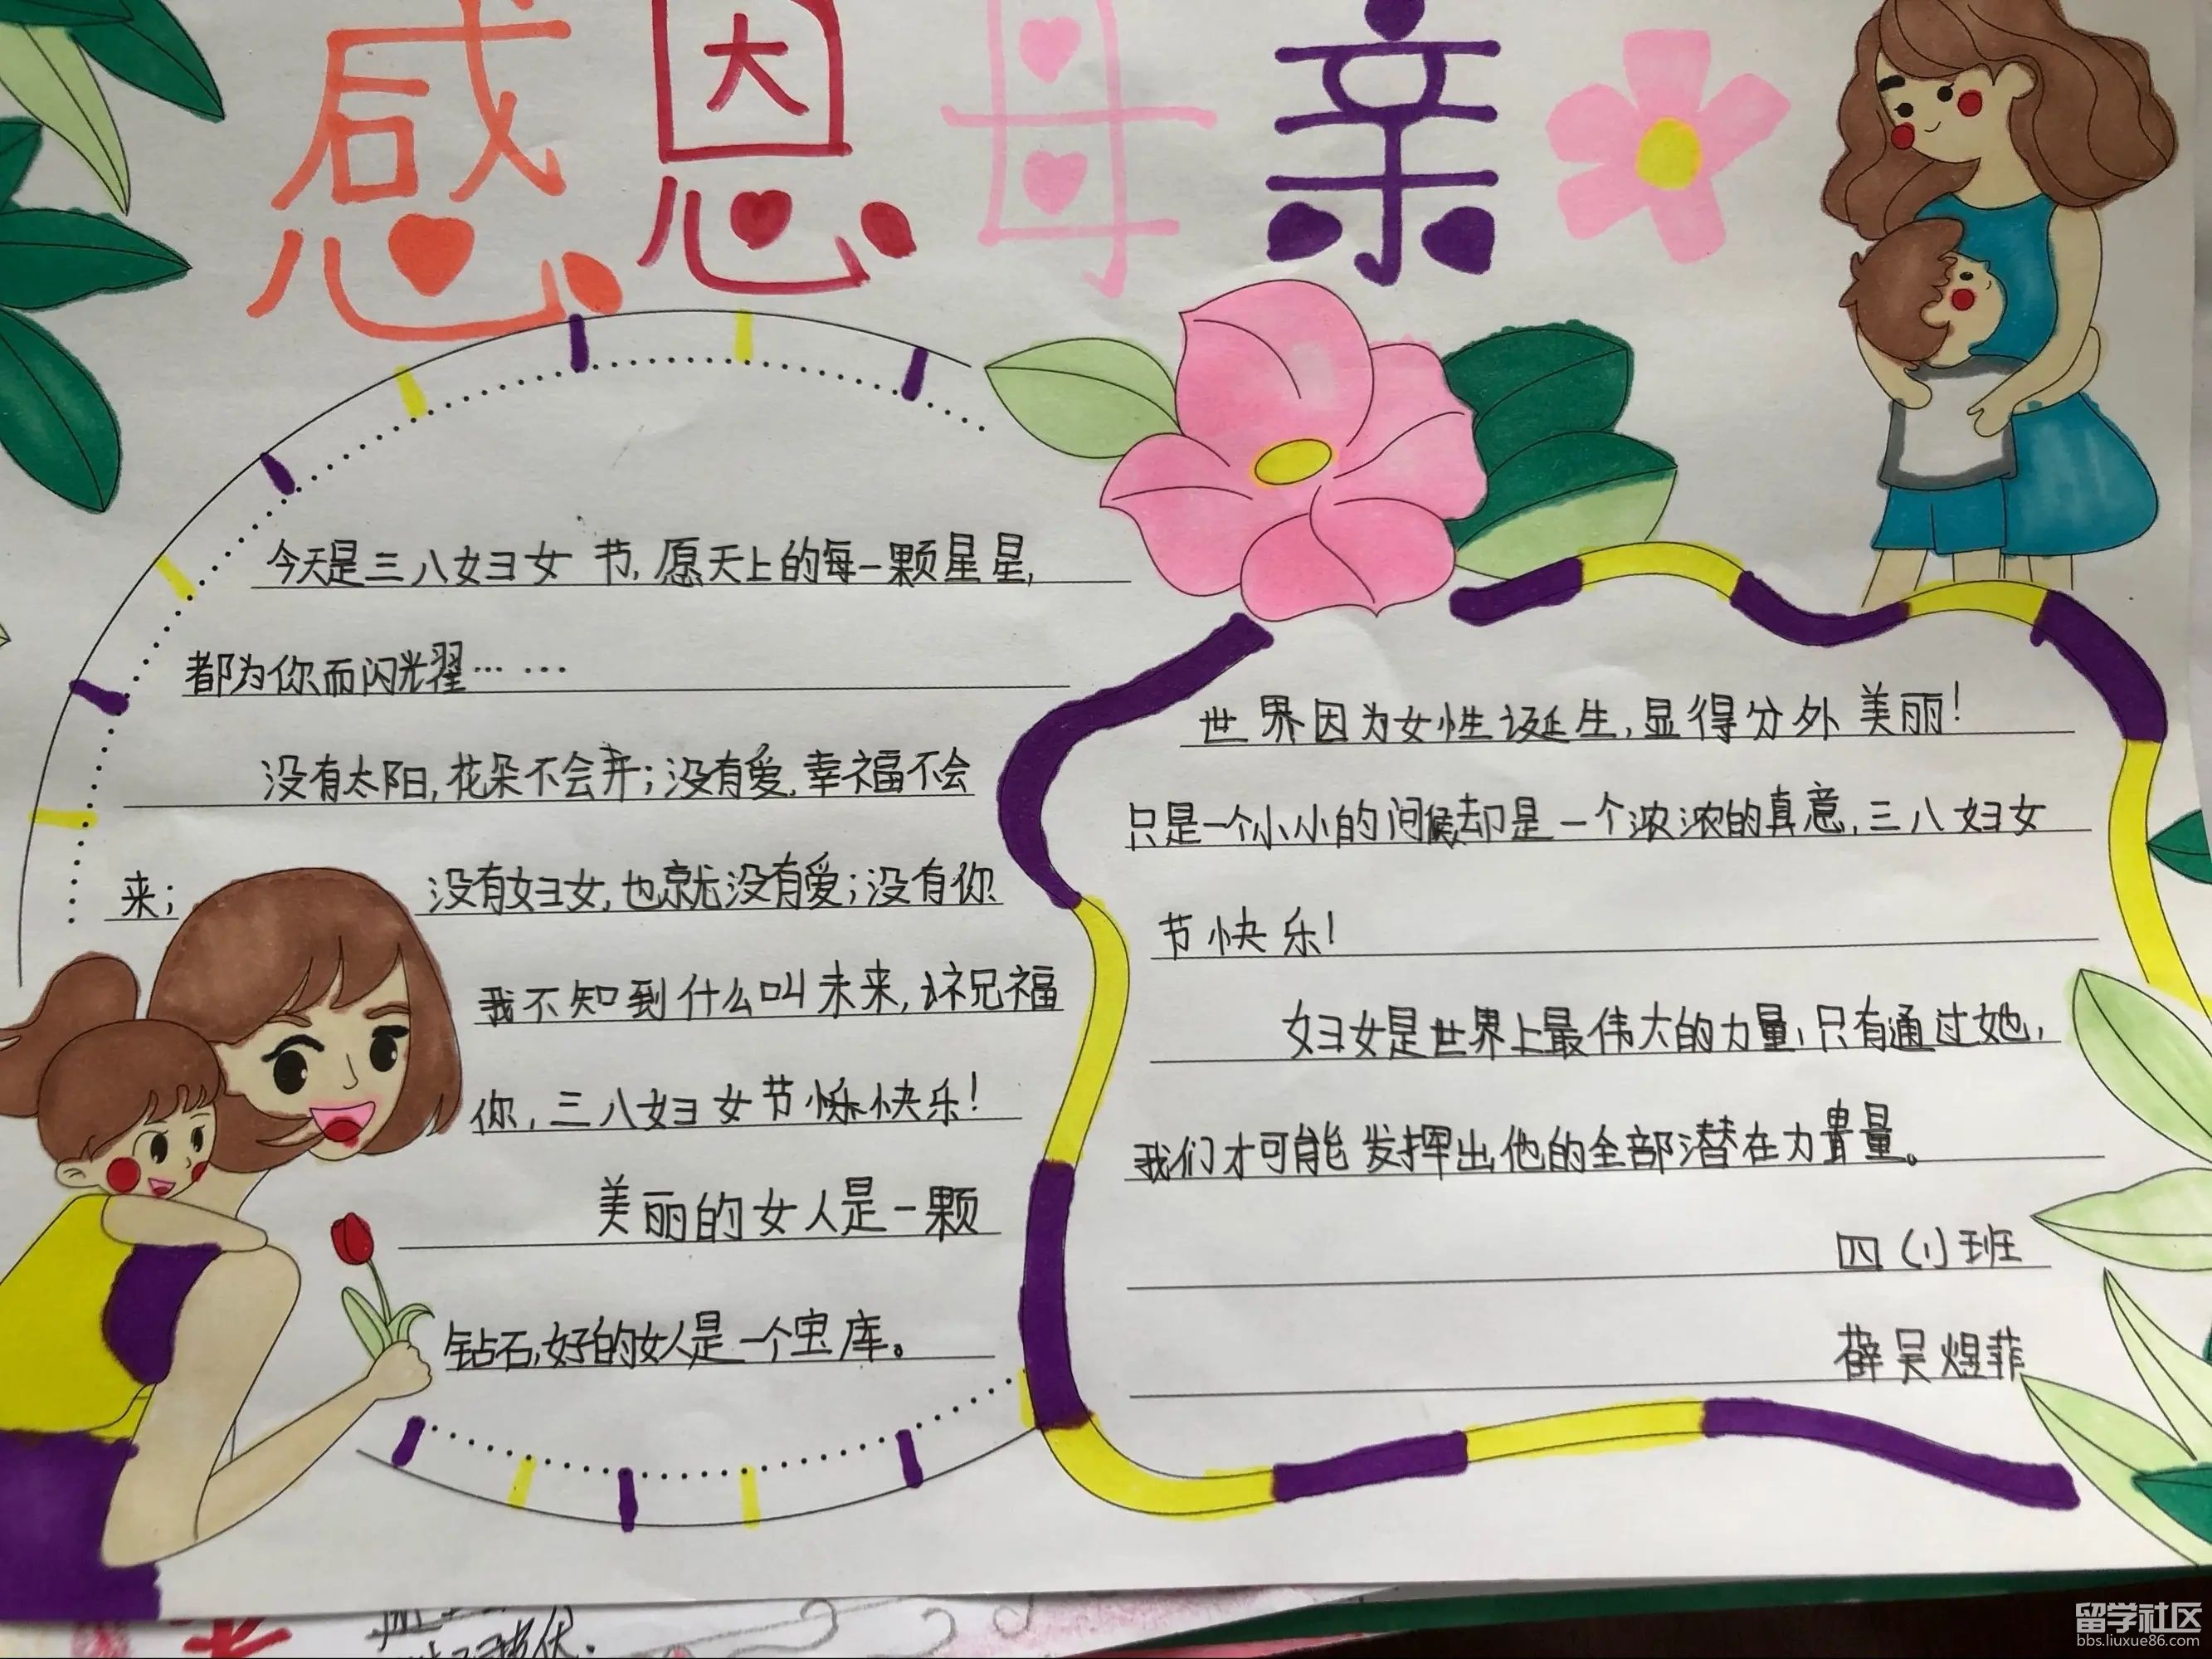 感恩母亲
今天是三八妇女节,愿天上的每一颗星星,
都为你而闪光耀……
没有太阳,花朵不会开;没有爱,幸福不会
来; 没有妇女,也就没有爱;没有你
我不知到什么叫未来,祝福
你,三八妇女节快乐!
美丽的女人是一颗
钻石,好的女人是一个宝库。
世界因为女性诞生,显得分外美丽!
只是一个小小的问候却是一个浓浓的真意,三八妇女
节快乐!
妇女是世界上最伟大的力量,只有通过她,
我们才可能发挥出他的全部潜在力量。
四(1)班
薛吴煜菲
留学社区
bbs.liuxue86.com